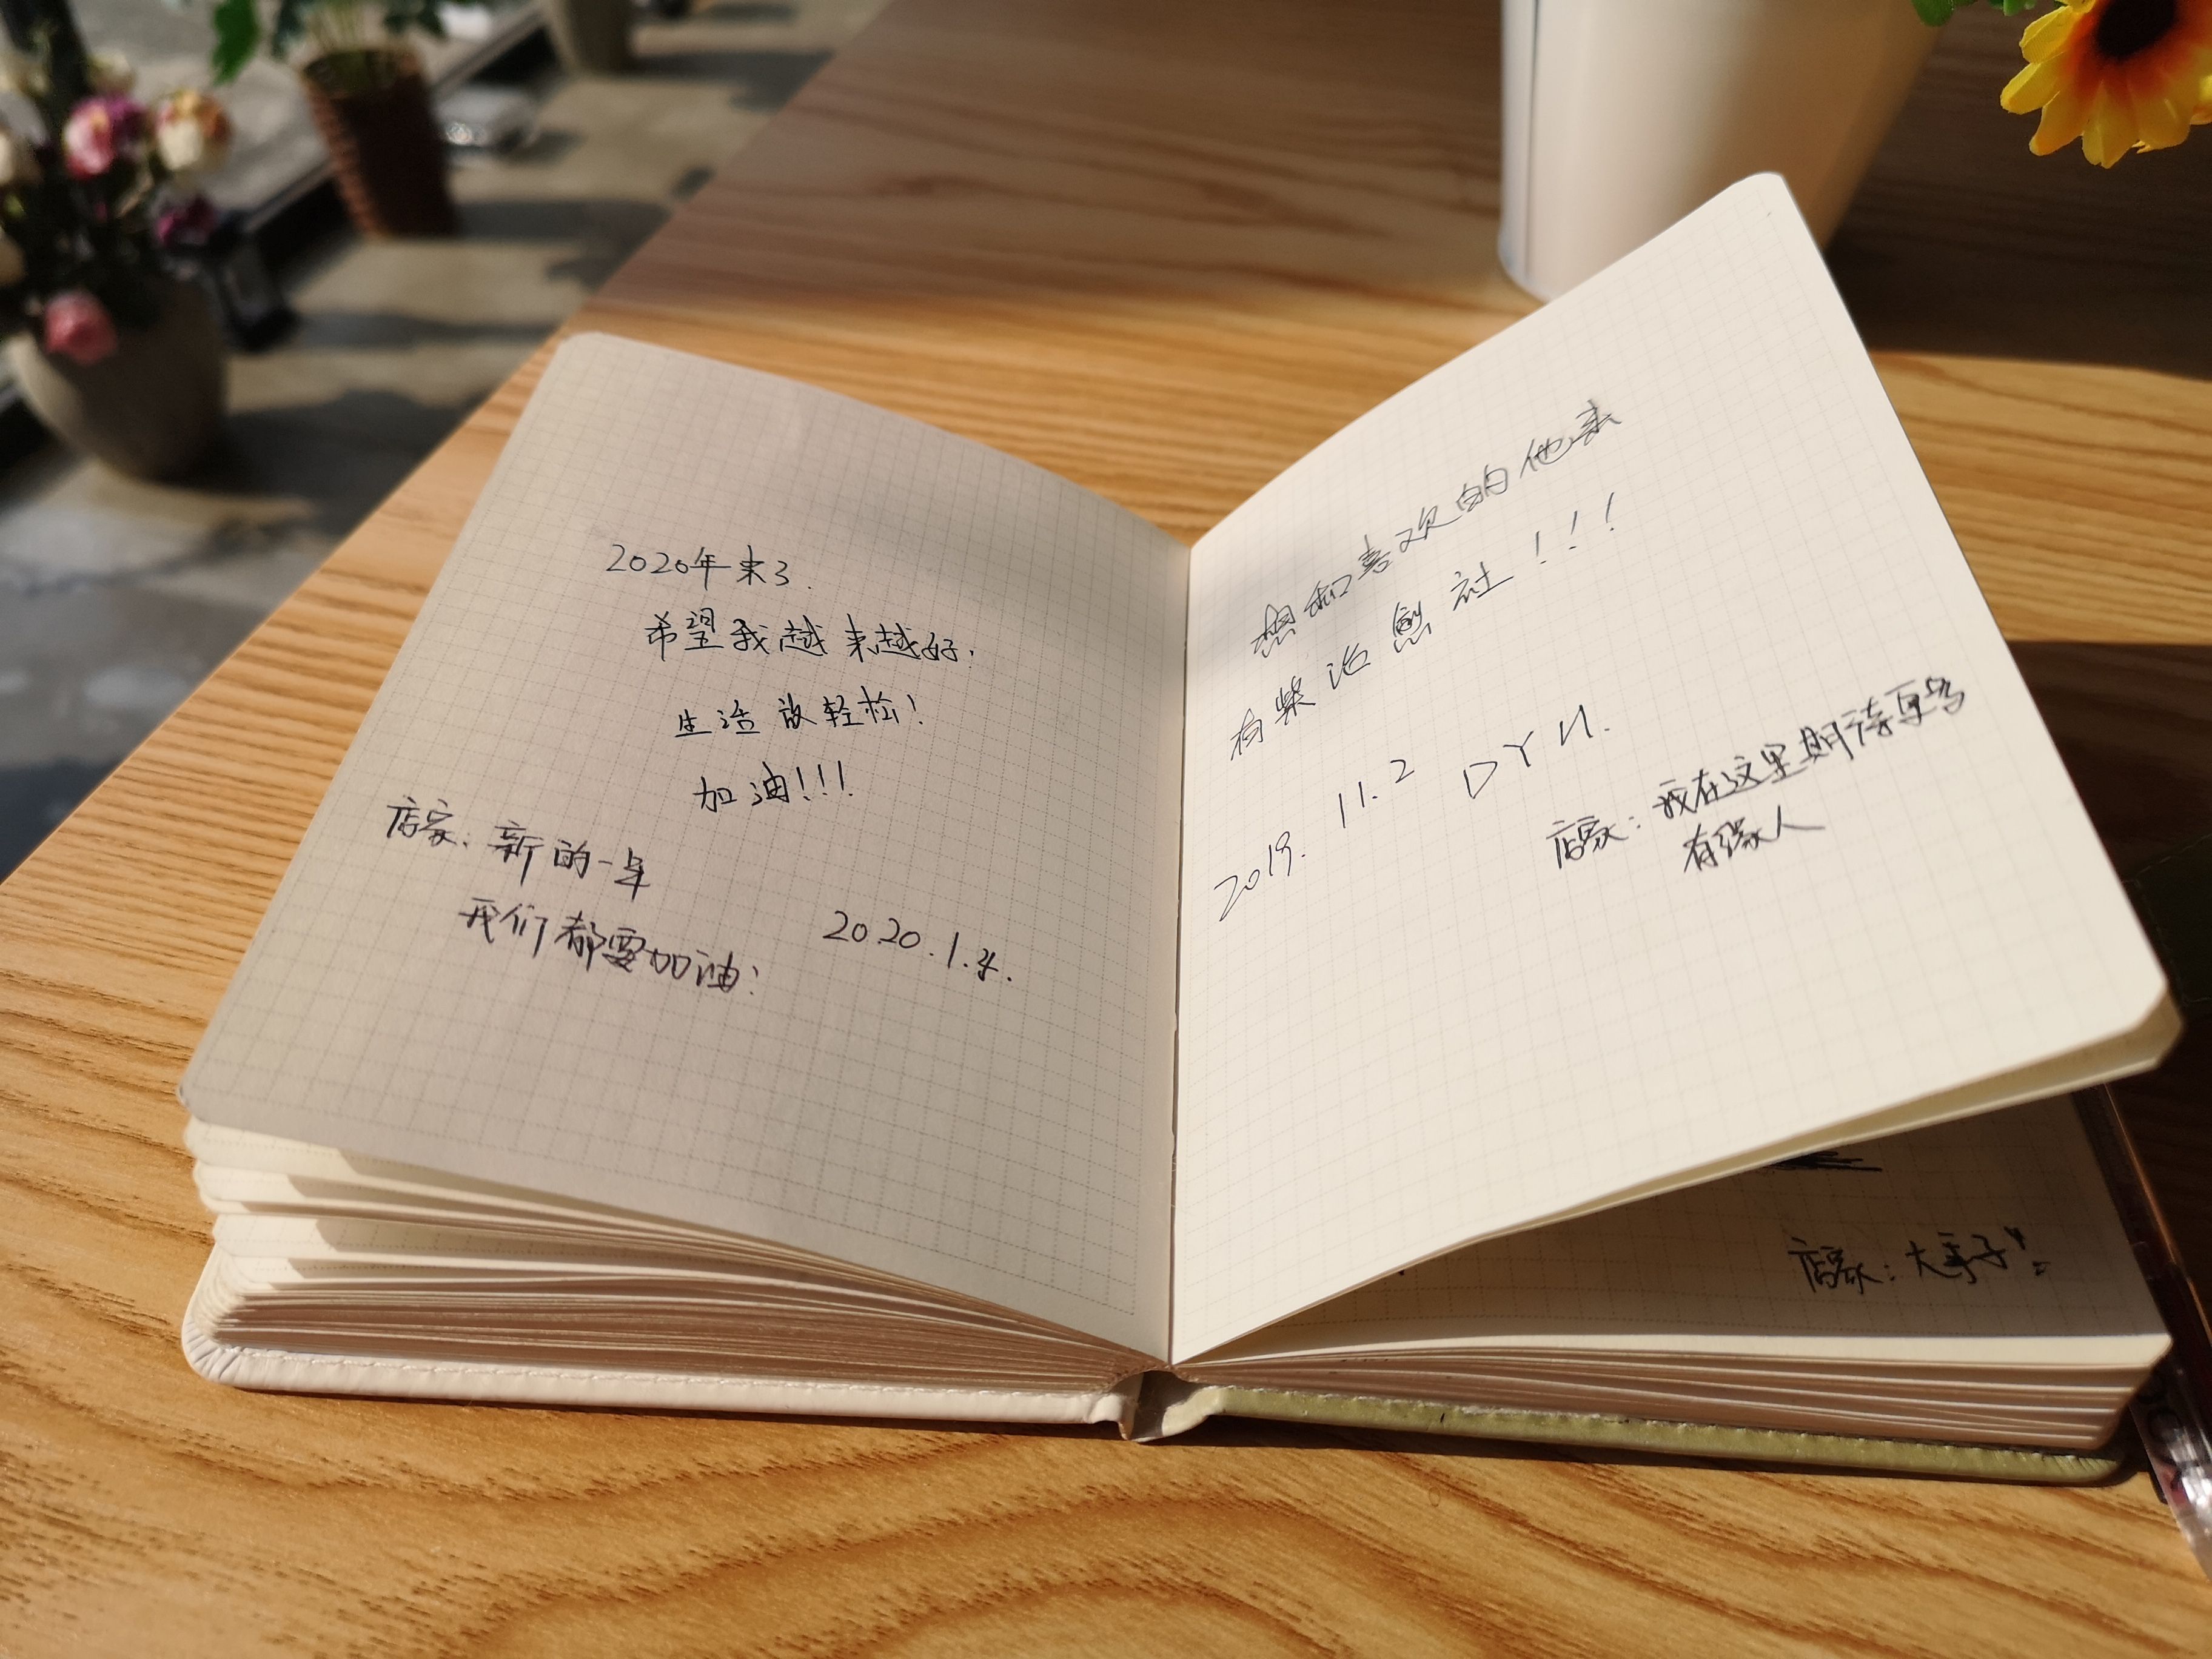 2020年来了.
希望我越来越好.
生活放轻松!
加油!!!
店家: 新的一年
我们都要加油!
2020.1.4.
想和喜欢的他来
有柴治愈社!!!
2019. 11.2 DYH.
店家: 我在这里期待更多
有缘人
店家: 大手子